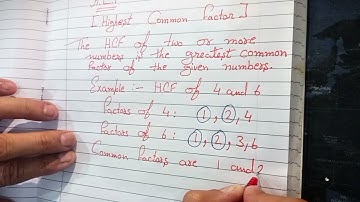 [Highest Common Factor]
The HCF of two or more
numbers is the greatest common
factor of the given numbers.
Example :- HCF of 4 and 6
Factors of 4: 1, 2, 4
Factors of 6: 1, 2, 3, 6
Common factors are 1 and 2